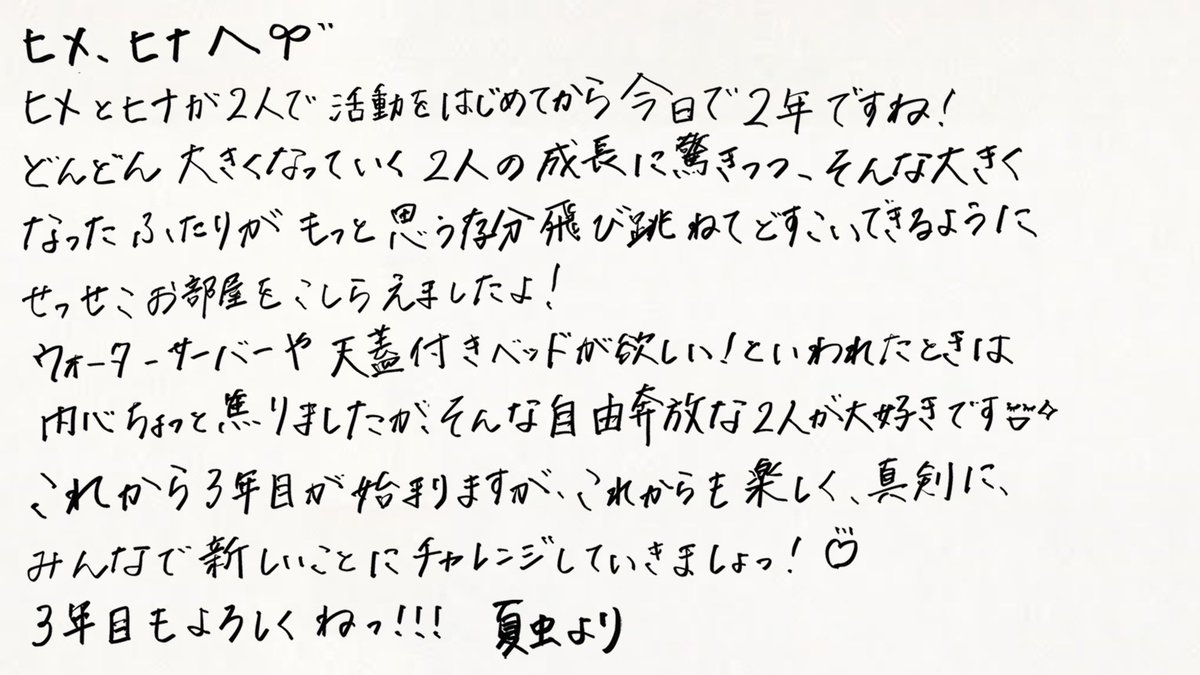 ヒメ、ヒナへ
ヒメとヒナが2人で活動をはじめてから今日で2年ですね!
どんどん大きくなっていく2人の成長に驚きつつ、そんな大きく
なったふたりがもっと思う存分飛び跳ねてどすこいできるように
せっせこお部屋をこしらえましたよ!
ウォーターサーバーや天蓋付きベッドが欲しい!といわれたときは
内心ちょっと焦りましたが、そんな自由奔放な2人が大好きです
これから3年目が始まりますが、これからも楽しく、真剣に、
みんなで新しいことにチャレンジしていきましょっ!
3年目もよろしくねっ!!! 夏虫より